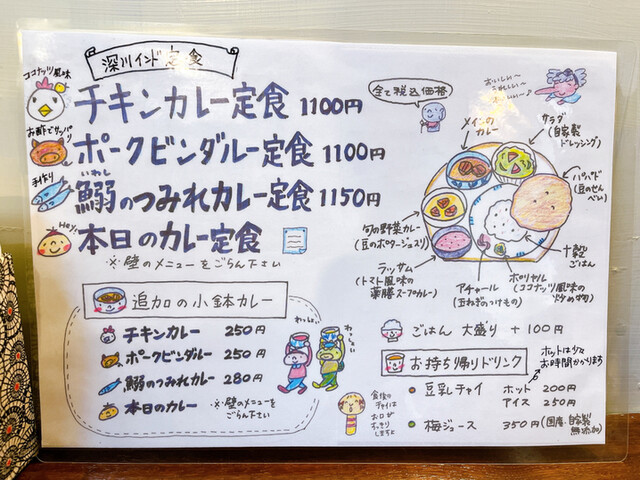 深川インド定食
ココナッツ風味
チキンカレー定食 1100円
お酢でサッパリ
ポークビンダルー定食 1100円
手作り
いわし
鰯のつみれカレー定食 1150円
Hey!
本日のカレー定食
※壁のメニューをごらん下さい
全て税込価格
おいしい〜
うれしい〜
メインの
カレー
サラダ
(自家製
ドレッシング)
パパド
(豆のせん
べい)
旬の野菜カレー
(豆のポタージュスリ)
ラッサム
(トマト風味の
薬膳スープカレー)
アチャール
(玉ねぎのつけもの)
ポリヤル
(ココナッツ風味の
炒め物)
十穀
ごはん
追加の小鉢カレー
チキンカレー 250円
ポークビンダルー 250円
鰯のつみれカレー 280円
本日のカレー ※壁のメニューを
ごらん下さい
わっしょい
わっしょい
ごはん 大盛り +100円
お持ち帰りドリンク
ホットは少々
お時間かかります
豆乳チャイ ホット 200円
アイス 250円
梅ジュース 350円(国産、自家製
無添加)
食後の
チャイは
お口が
すっきり
しますよ